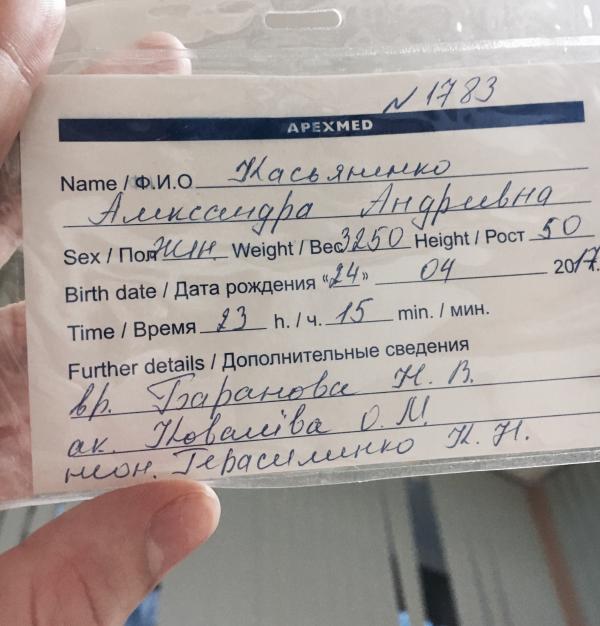 N 1783
APEXMED
Name / Ф.И.О Касьяненко
Александра Андреевна
Sex / Пол жен Weight / Вес 3250 Height / Рост 50
Birth date / Дата рождения "24" 04 2017г.
Time / Время 23 h. / ч. 15 min. / мин.
Further details / Дополнительные сведения
вр. Баранова Н. В.
ак. Ковалёва О. М.
неон. Герасименко К. Н.